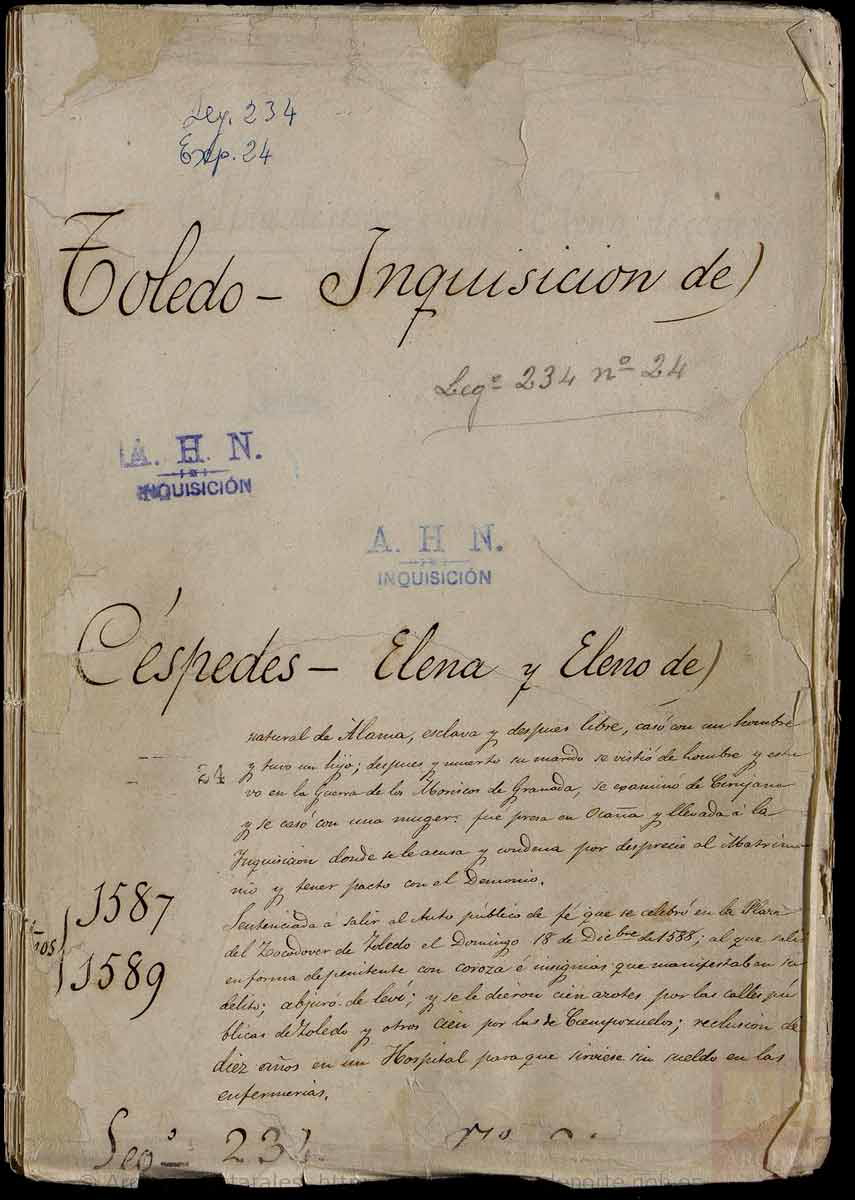 Leg. 234
Exp. 24
Toledo - Inquisicion de)
Legº 234 nº 24
A. H. N.
INQUISICIÓN
A. H N.
INQUISICIÓN
Céspedes - Elena y Eleno de)
natural de Alama, esclava y despues libre, casó con un hombre
24 y tuvo un hijo; despues y muerto su marido se vistió de hombre y estu-
vo en la Guerra de los Moriscos de Granada, se examinó de Cirujano
y se casó con una muger: fue presa en Ocaña y llevada á la
Inquisicion donde se le acusa y condena por desprecio al Matrimo-
nio y tener pacto con el Demonio.
Sentenciada á salir al Auto público de fé que se celebró en la Plaza
del Zocodover de Toledo el Domingo 18 de Dicbre de 1588; al que salió
en forma de penitente con coroza é insignias que manifestaban su
delito; abjuró de leví; y se le dieron cien azotes por las calles pú-
blicas de Toledo y otros cien por las de Ciempozuelos; reclusion de
diez años en un Hospital para que sirviese sin sueldo en las
enfermerias.
1587
ños
1589
Legº 234